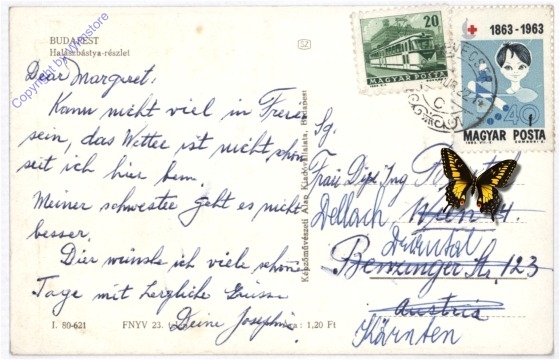 BUDAPEST
Halászbástya-részlet
Copyright by vyrestore
SZ
20
MAGYAR POSTA
1863-1963
40
MAGYAR POSTA
Dear Margaret!
Kann nicht viel in Freie
sein, das Wetter ist nicht schön
seit ich hier bin.
Meiner schwester geht es nicht
besser.
Dir wünsche ich viele schöne
Tage mit herzliche Grüsse
Deine Josephin
I. 80-621
FNYV 23.
1,20 Ft
Képzőművészeti Alap Kiadóvállalata, Budapest
Sg.
Frau Dipl. Ing
Dellach, Wien 14.
Drautal
Benzinger St. 123
Austria
Kärnten